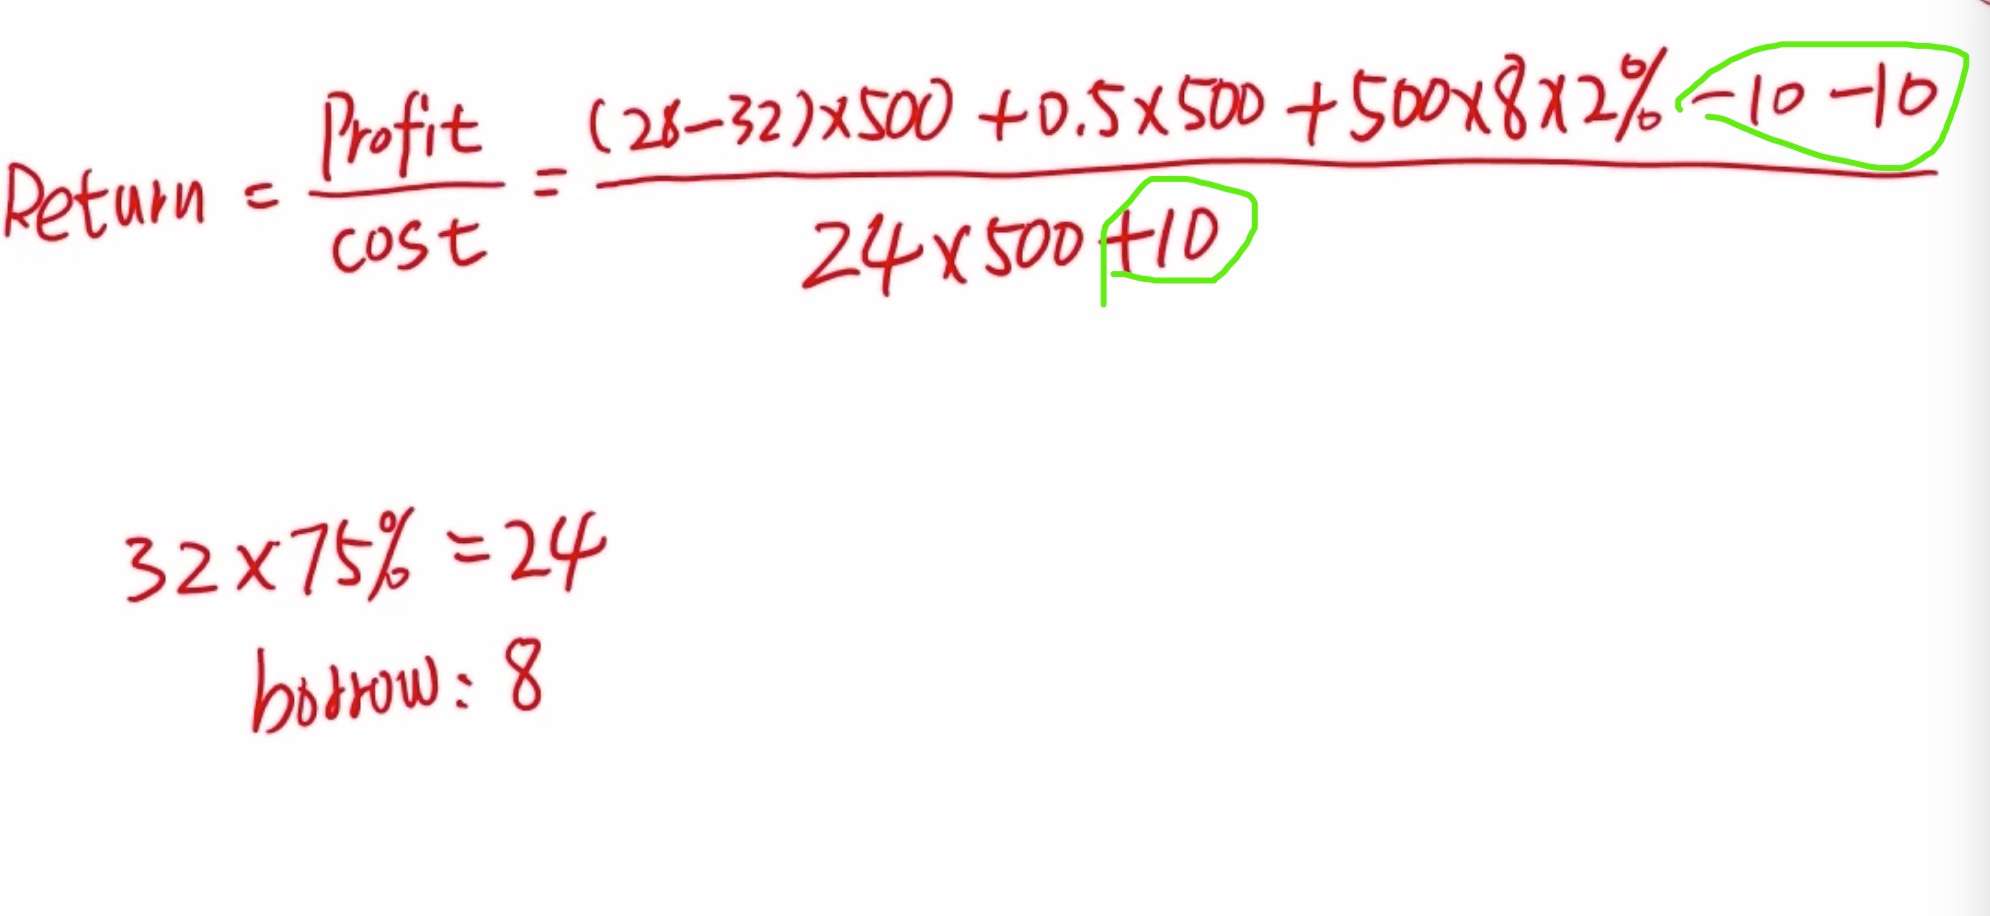 Return = Profit / cost = (28-32)×500 +0.5×500 +500×8×2% -10 -10 / 24×500 +10
32×75% =24
borrow: 8